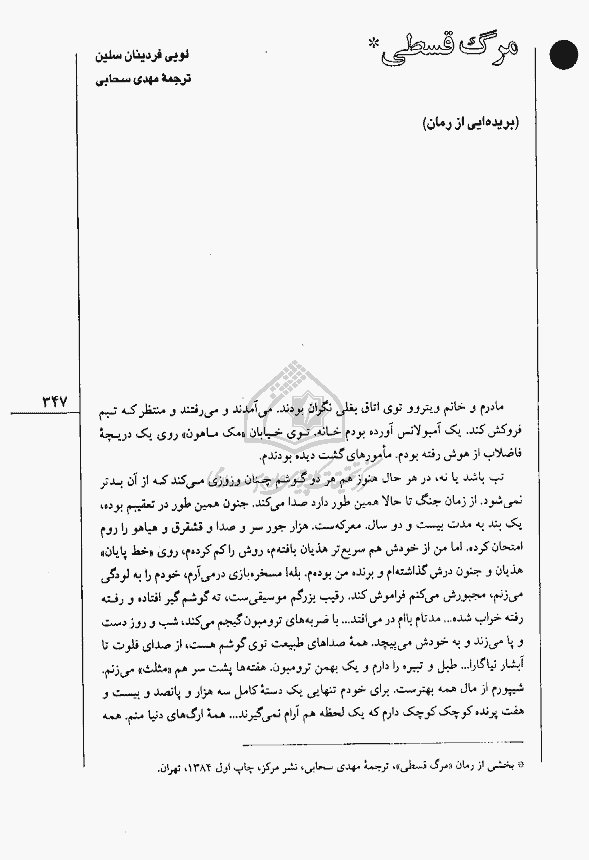 مرگ قسطی*
لویی فردینان سلین
ترجمهٔ مهدی سحابی
(بریده‌ایی از رمان)
۳۴۷
مادرم و خانم ویتروو توی اتاق بغلی نگران بودند. می‌آمدند و می‌رفتند و منتظر که تبم
فروکش کند. یک آمبولانس آورده بودم خانه. توی خیابان «مک ماهون» روی یک دریچهٔ
فاضلاب از هوش رفته بودم. مأمورهای گشت دیده بودندم.
تب باشد یا نه، در هر حال هنوز هم هر دو گوشم چنان وزوزی می‌کند که از آن بدتر
نمی‌شود. از زمان جنگ تا حالا همین طور دارد صدا می‌کند. جنون همین طور در تعقیبم بوده،
یک بند به مدت بیست و دو سال. معرکه‌ست. هزار جور سر و صدا و قشقرق و هیاهو را روم
امتحان کرده. اما من از خودش هم سریع‌تر هذیان بافته‌م، روش را کم کرده‌م، روی «خط پایان»
هذیان و جنون درش گذاشته‌ام و برنده من بوده‌م. بله! مسخره‌بازی درمی‌آرم، خودم را به لودگی
می‌زنم، مجبورش می‌کنم فراموش کند. رقیب بزرگم موسیقی‌ست، ته گوشم گیر افتاده و رفته
رفته خراب شده... مدتام باام در می‌افتد... با ضربه‌های ترومبون گیجم می‌کند، شب و روز دست
و پا می‌زند و به خودش می‌پیچد. همهٔ صداهای طبیعت توی گوشم هست، از صدای فلوت تا
آبشار نیاگارا... طبل و تبیره را دارم و یک بهمن ترومبون. هفته‌ها پشت سر هم «مثلث» می‌زنم.
شیپورم از مال همه بهترست. برای خودم تنهایی یک دستهٔ کامل سه هزار و پانصد و بیست و
هفت پرنده کوچک کوچک دارم که یک لحظه هم آرام نمی‌گیرند... همهٔ ارگ‌های دنیا منم. همه
* بخشی از رمان «مرگ قسطی»، ترجمهٔ مهدی سحابی، نشر مرکز، چاپ اول ۱۳۸۴، تهران.